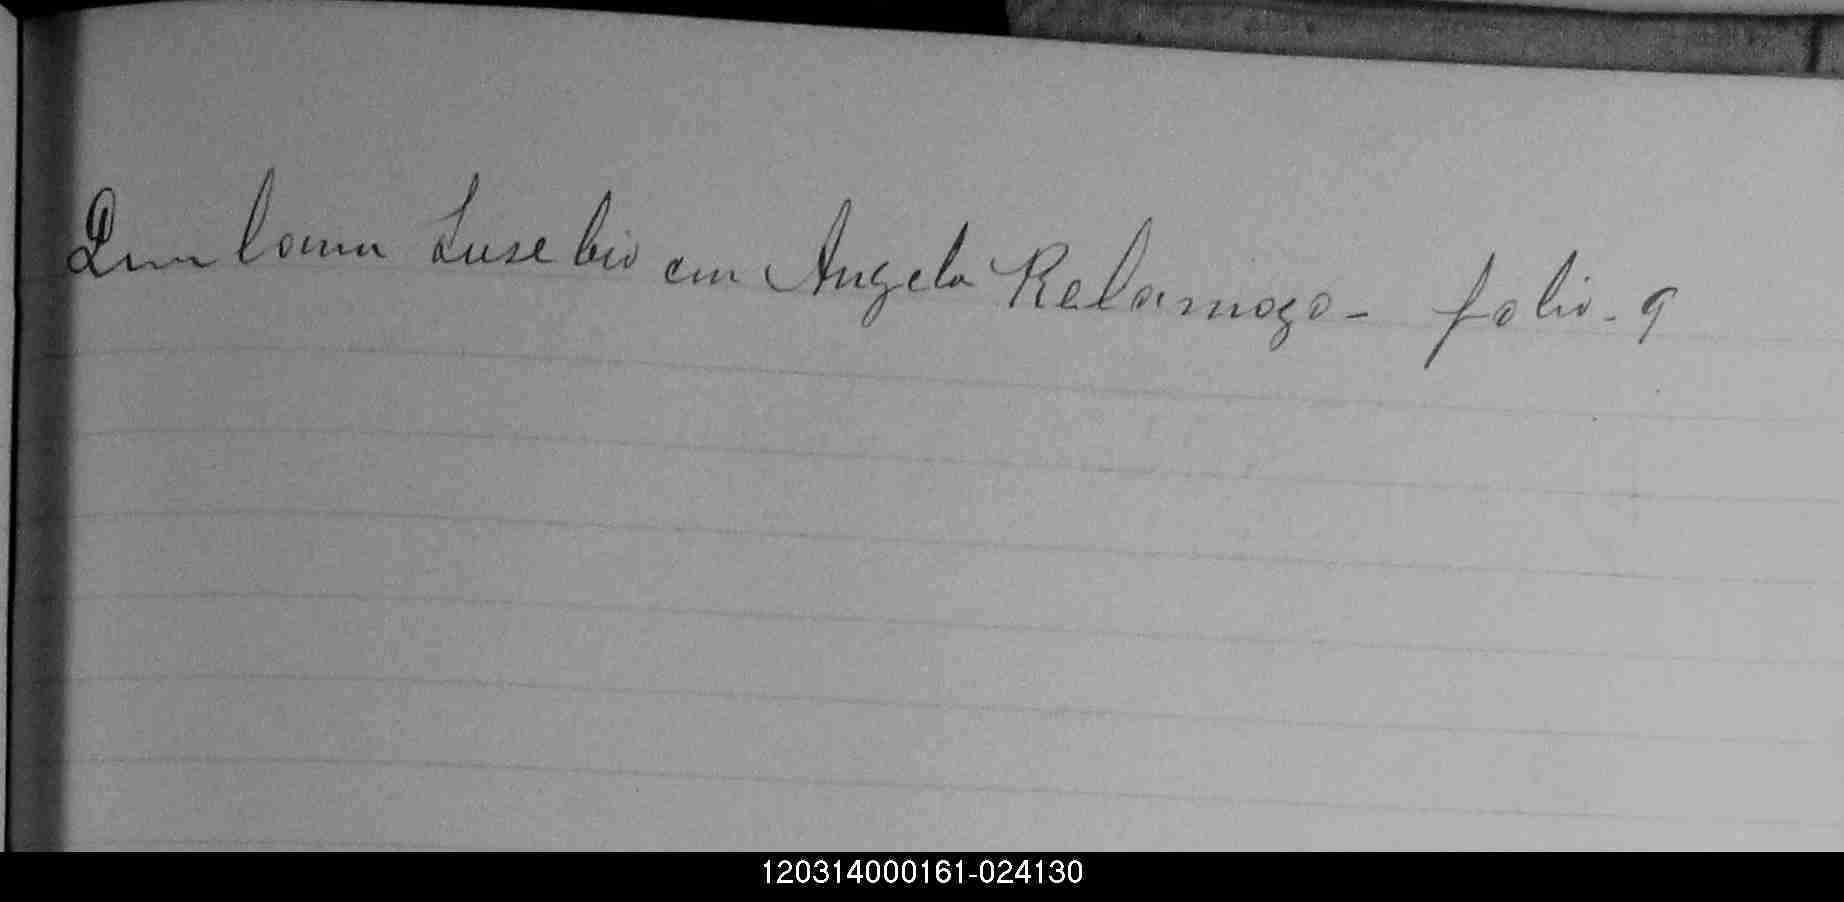 Eusebio con Angela Relamozo - folio - 9
120314000161-024130